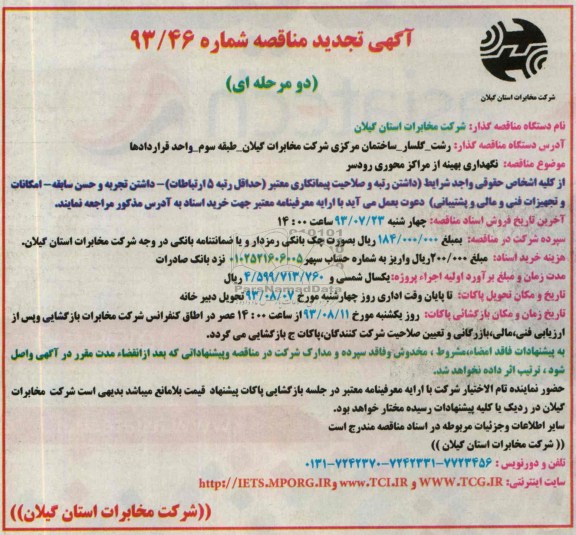 آگهی تجدید مناقصه شماره ۹۳/۴۶
(دو مرحله ای)
شرکت مخابرات استان گیلان
نام دستگاه مناقصه گذار: شرکت مخابرات استان گیلان
آدرس دستگاه مناقصه گذار: رشت_گلسار_ساختمان مرکزی شرکت مخابرات گیلان_طبقه سوم_واحد قراردادها
موضوع مناقصه: نگهداری بهینه از مراکز محوری رودسر
از کلیه اشخاص حقوقی واجد شرایط (داشتن رتبه و صلاحیت پیمانکاری معتبر (حداقل رتبه ۵ ارتباطات) - داشتن تجربه و حسن سابقه - امکانات
و تجهیزات فنی و مالی و پشتیبانی) دعوت بعمل می آید با ارایه معرفینامه معتبر جهت خرید اسناد به آدرس مذکور مراجعه نمایند.
آخرین تاریخ فروش اسناد مناقصه: چهار شنبه ۹۳/۰۷/۲۳ ساعت ۱۴:۰۰
سپرده شرکت در مناقصه: بمبلغ ۱۸۴/۰۰۰/۰۰۰ ریال بصورت چک بانکی رمزدار و یا ضمانتنامه بانکی در وجه شرکت مخابرات استان گیلان.
هزینه خرید اسناد: مبلغ ۲۰۰/۰۰۰ریال واریز به شماره حساب سپهر ۰۱۰۲۵۲۱۶۰۶۰۰۵ نزد بانک صادرات
مدت زمان و مبلغ برآورد اولیه اجراء پروژه: یکسال شمسی و ۴/۵۹۹/۷۱۳/۷۶۰ ریال
ParsNamadData
تاریخ و مکان تحویل پاکات: تا پایان وقت اداری روز چهارشنبه مورخ ۹۳/۰۸/۰۷ تحویل دبیر خانه
تاریخ زمان و مکان بازگشائی پاکات: روز یکشنبه مورخ ۹۳/۰۸/۱۱ از ساعت ۱۴:۰۰ عصر در اطاق کنفرانس شرکت مخابرات بازگشایی وپس از
ارزیابی فنی،مالی،بازرگانی و تعیین صلاحیت شرکت کنندگان،پاکات ج بازگشایی می گردد.
به پیشنهادات فاقد امضاء،مشروط ، مخدوش وفاقد سپرده و مدارک شرکت در مناقصه وپیشنهاداتی که بعد ازانقضاء مدت مقرر در آگهی واصل
شود ، ترتیب اثر داده نخواهد شد.
حضور نماینده تام الاختیار شرکت با ارایه معرفینامه معتبر در جلسه بازگشایی پاکات پیشنهاد قیمت بلامانع میباشد بدیهی است شرکت مخابرات
گیلان در ردیک یا کلیه پیشنهادات رسیده مختار خواهد بود.
سایر اطلاعات وجزئیات مربوطه در اسناد مناقصه مندرج است
(( شرکت مخابرات استان گیلان ))
تلفن و دورنویس : ۷۷۲۳۴۵۶-۷۲۴۲۳۳۱-۷۲۴۲۳۷۰-۰۱۳۱
سایت اینترنتی: WWW.TCG.IR و www.TCI.IR و http://IETS.MPORG.IR
((شرکت مخابرات استان گیلان))